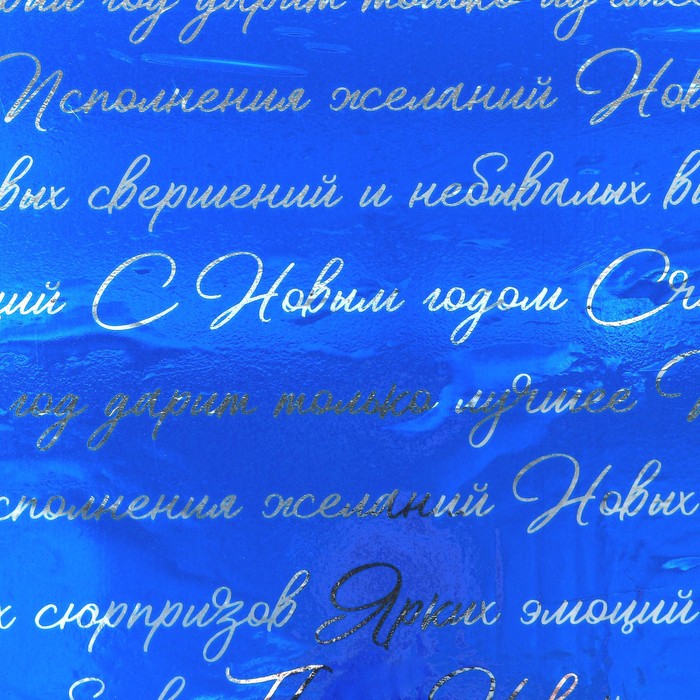 год дарит только лучшее
Исполнения желаний Нов
вых свершений и небывалых
ций С Новым годом
год дарит только лучшее
сполнения желаний Новых
х сюрпризов Ярких эмоций